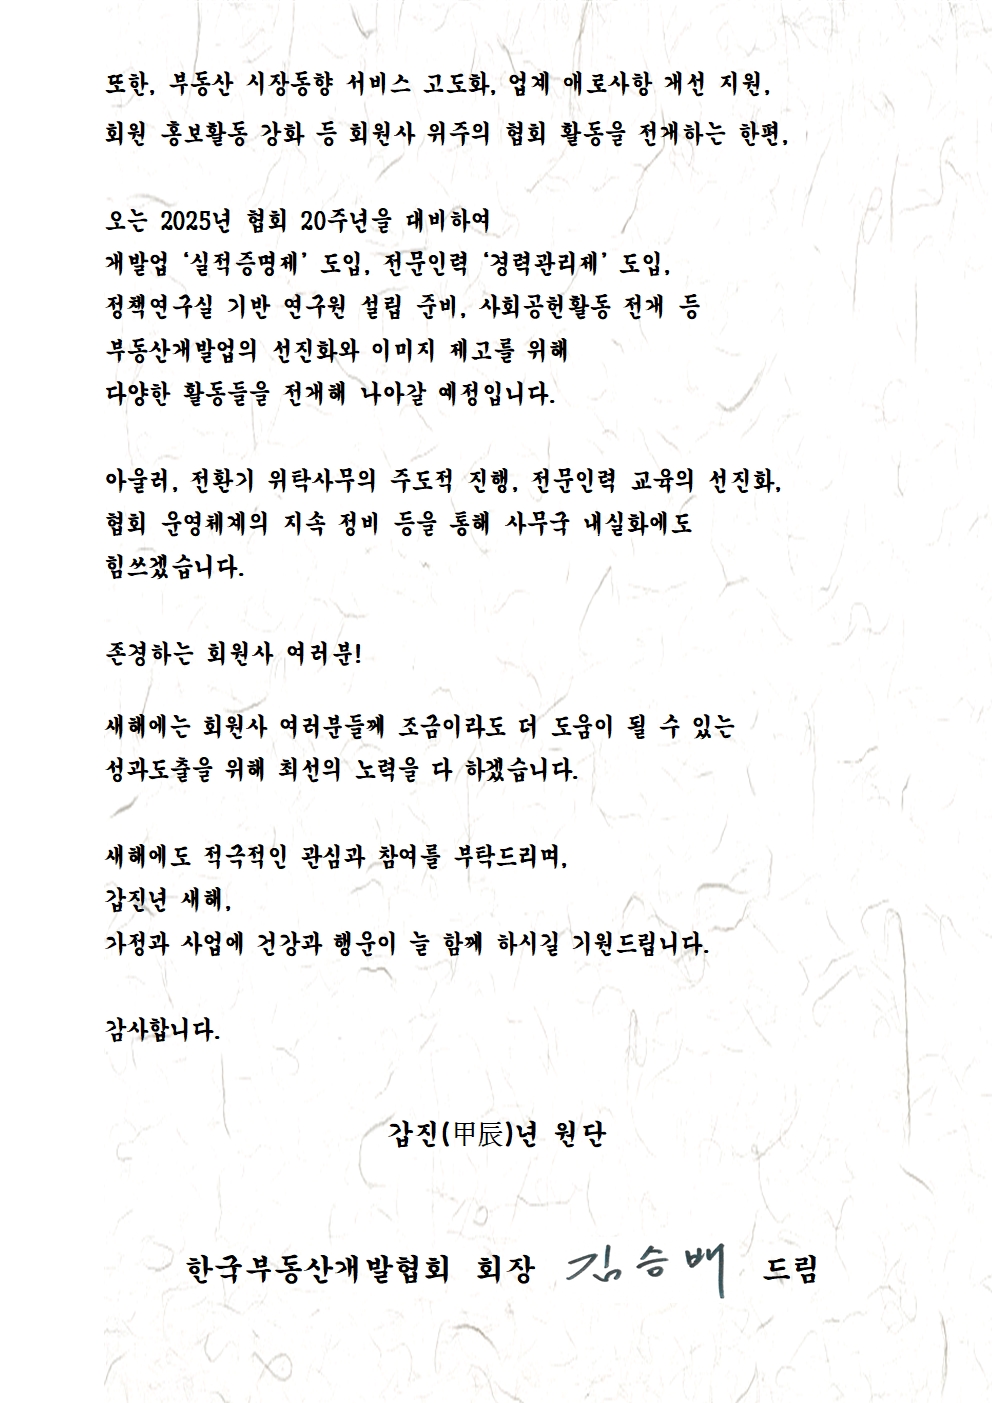 또한, 부동산 시장동향 서비스 고도화, 업계 애로사항 개선 지원,
회원 홍보활동 강화 등 회원사 위주의 협회 활동을 전개하는 한편,
오는 2025년 협회 20주년을 대비하여
개발업 ‘실적증명제’ 도입, 전문인력 ‘경력관리제’ 도입,
정책연구실 기반 연구원 설립 준비, 사회공헌활동 전개 등
부동산개발업의 선진화와 이미지 제고를 위해
다양한 활동들을 전개해 나아갈 예정입니다.
아울러, 전환기 위탁사무의 주도적 진행, 전문인력 교육의 선진화,
협회 운영체계의 지속 정비 등을 통해 사무국 내실화에도
힘쓰겠습니다.
존경하는 회원사 여러분!
새해에는 회원사 여러분들께 조금이라도 더 도움이 될 수 있는
성과도출을 위해 최선의 노력을 다 하겠습니다.
새해에도 적극적인 관심과 참여를 부탁드리며,
갑진년 새해,
가정과 사업에 건강과 행운이 늘 함께 하시길 기원드립니다.
감사합니다.
갑진(甲辰)년 원단
한국부동산개발협회 회장 김승배 드림